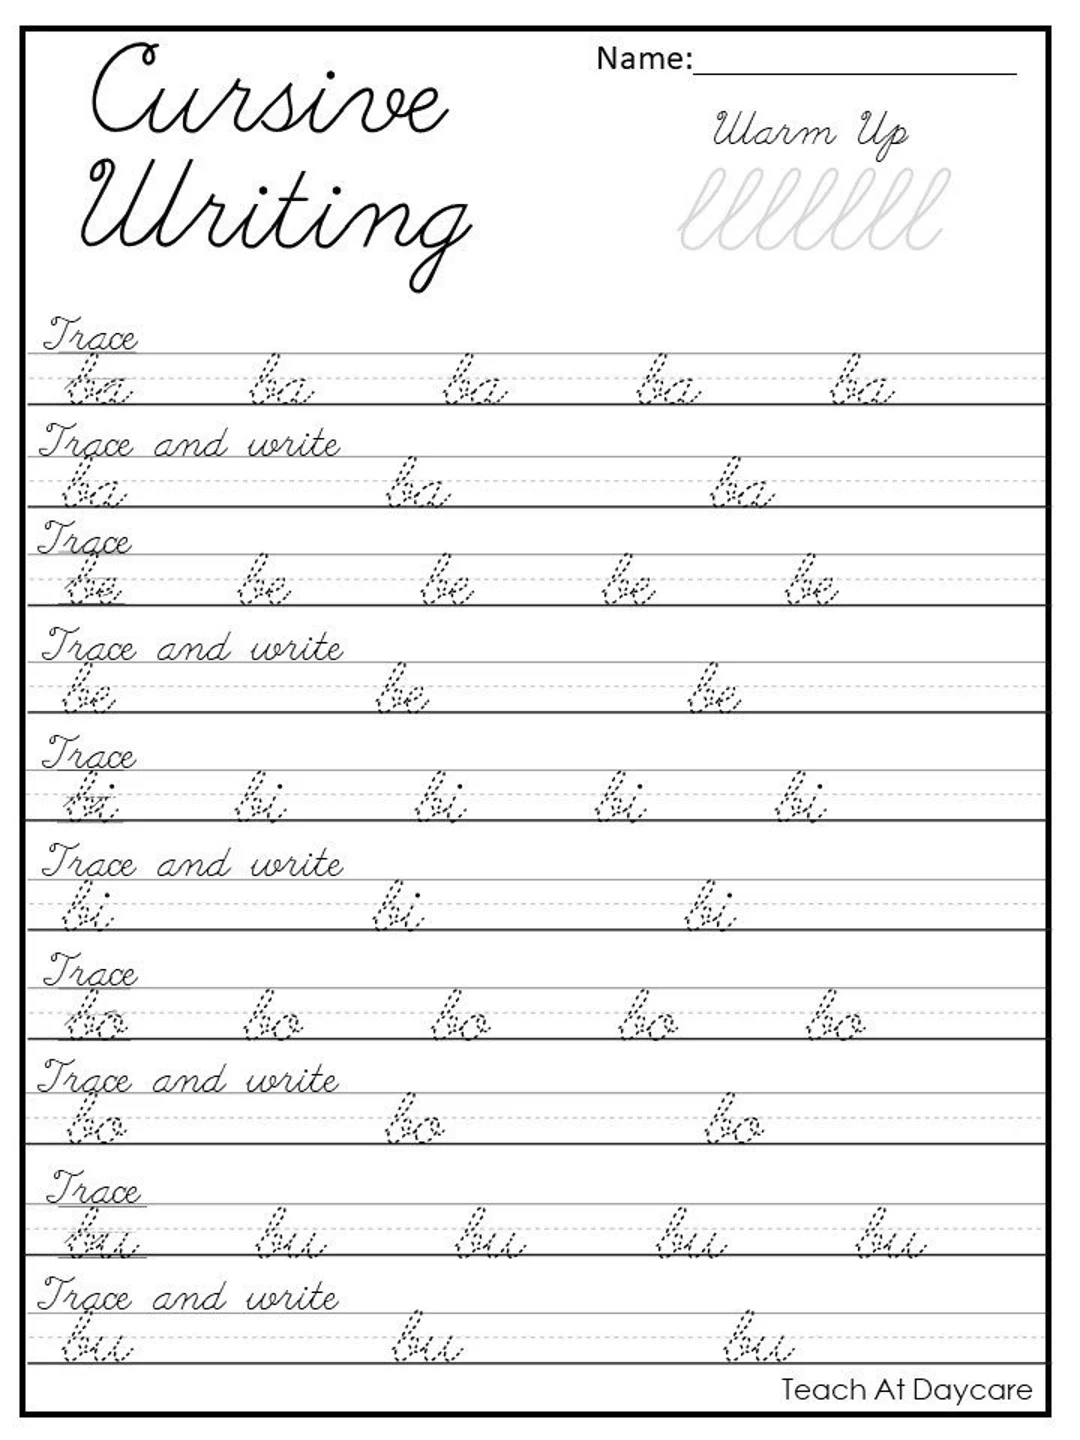 Cursive
Writing
Name:
Warm Up
lllllll
Trace
ba ba ba ba ba
Trace and write
ba ba ba
Trace
be be be be be
Trace and write
be be be
Trace
bi bi bi bi bi
Trace and write
bi bi bi
Trace
bo bo bo bo bo
Trace and write
bo bo bo
Trace
bu bu bu bu bu
Trace and write
bu bu bu
Teach At Daycare